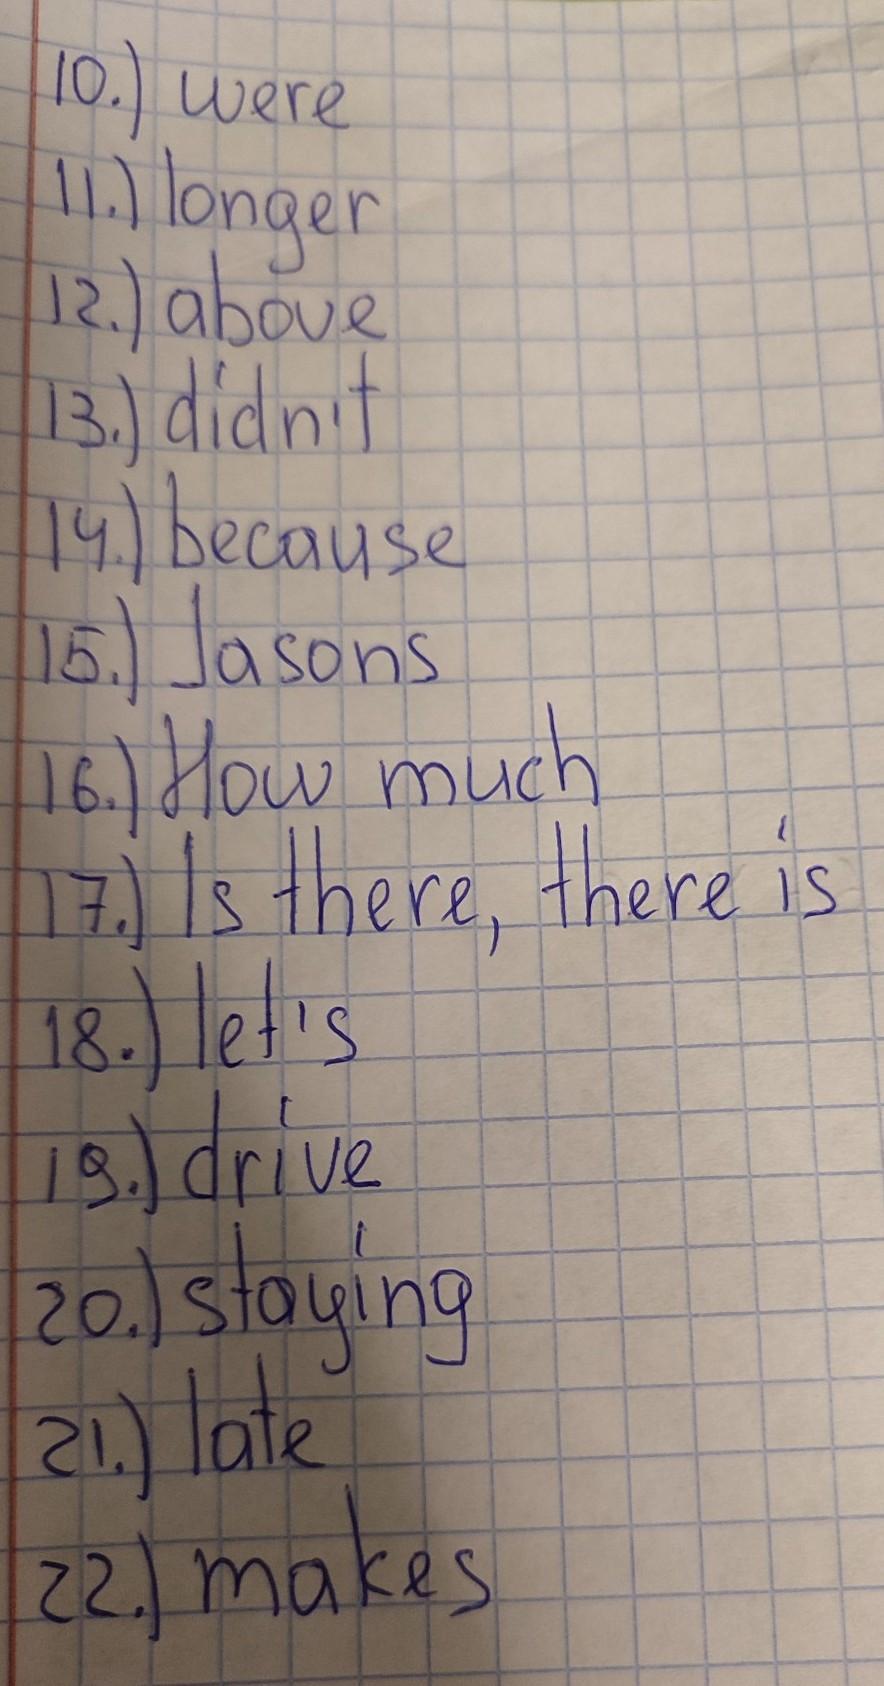 10.) were
11.) longer
12.) above
13.) didn't
14.) because
15.) Jasons
16.) How much
17.) Is there, there is
18.) let's
19.) drive
20.) staying
21.) late
22.) makes